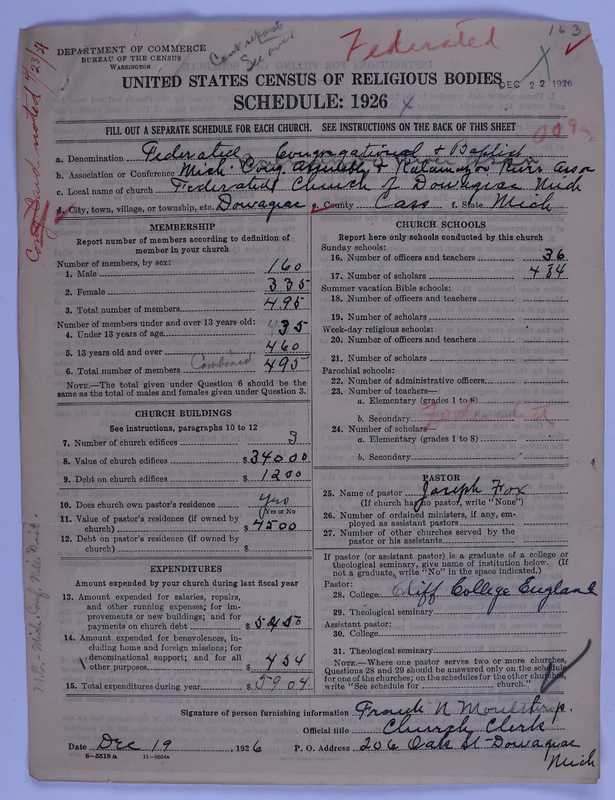 163
DEPARTMENT OF COMMERCE
BUREAU OF THE CENSUS
WASHINGTON
See over
Federated
DEC 22 1926
UNITED STATES CENSUS OF RELIGIOUS BODIES
SCHEDULE: 1926
FILL OUT A SEPARATE SCHEDULE FOR EACH CHURCH. SEE INSTRUCTIONS ON THE BACK OF THIS SHEET
a. Denomination Federated Congregational & Baptist
b. Association or Conference Mich. Cong. Assembly & Kalamazoo River Assn
c. Local name of church Federated Church of Dowagiac Mich
d. City, town, village, or township, etc. Dowagiac e. County Cass f. State Mich
MEMBERSHIP
Report number of members according to definition of member in your church
Number of members, by sex:
1. Male 160
2. Female 335
3. Total number of members 495
Number of members under and over 13 years old:
4. Under 13 years of age 35
5. 13 years old and over 460
6. Total number of members Combined 495
NOTE.—The total given under Question 6 should be the same as the total of males and females given under Question 3.
CHURCH BUILDINGS
See instructions, paragraphs 10 to 12
7. Number of church edifices 3
8. Value of church edifices $34000
9. Debt on church edifices $1200
10. Does church own pastor's residence yes
Yes or No
11. Value of pastor's residence (if owned by church) $7500
12. Debt on pastor's residence (if owned by church) $
EXPENDITURES
Amount expended by your church during last fiscal year
13. Amount expended for salaries, repairs, and other running expenses; for improvements or new buildings; and for payments on church debt $5450
14. Amount expended for benevolences, including home and foreign missions; for denominational support; and for all other purposes $454
15. Total expenditures during year $5904
CHURCH SCHOOLS
Report here only schools conducted by this church
Sunday schools:
16. Number of officers and teachers 36
17. Number of scholars 484
Summer vacation Bible schools:
18. Number of officers and teachers
19. Number of scholars
Week-day religious schools:
20. Number of officers and teachers
21. Number of scholars
Parochial schools:
22. Number of administrative officers
23. Number of teachers—
a. Elementary (grades 1 to 8)
b. Secondary
24. Number of scholars—
a. Elementary (grades 1 to 8)
b. Secondary
PASTOR
25. Name of pastor Joseph Fox
(If church has no pastor, write "None")
26. Number of ordained ministers, if any, employed as assistant pastors
27. Number of other churches served by the pastor or his assistants
If pastor (or assistant pastor) is a graduate of a college or theological seminary, give name of institution below. (If not a graduate, write "No" in the space indicated.)
Pastor:
28. College Cliff College England
29. Theological seminary
Assistant pastor:
30. College
31. Theological seminary
NOTE.—Where one pastor serves two or more churches, Questions 28 and 29 should be answered only on the schedule for one of the churches; on the schedules for the other churches, write "See schedule for church."
Signature of person furnishing information Frank N Moulthrop.
Official title Church Clerk
Date Dec 19, 1926 P. O. Address 206 Oak St Dowagiac Mich
8—5518 a
11—9054a